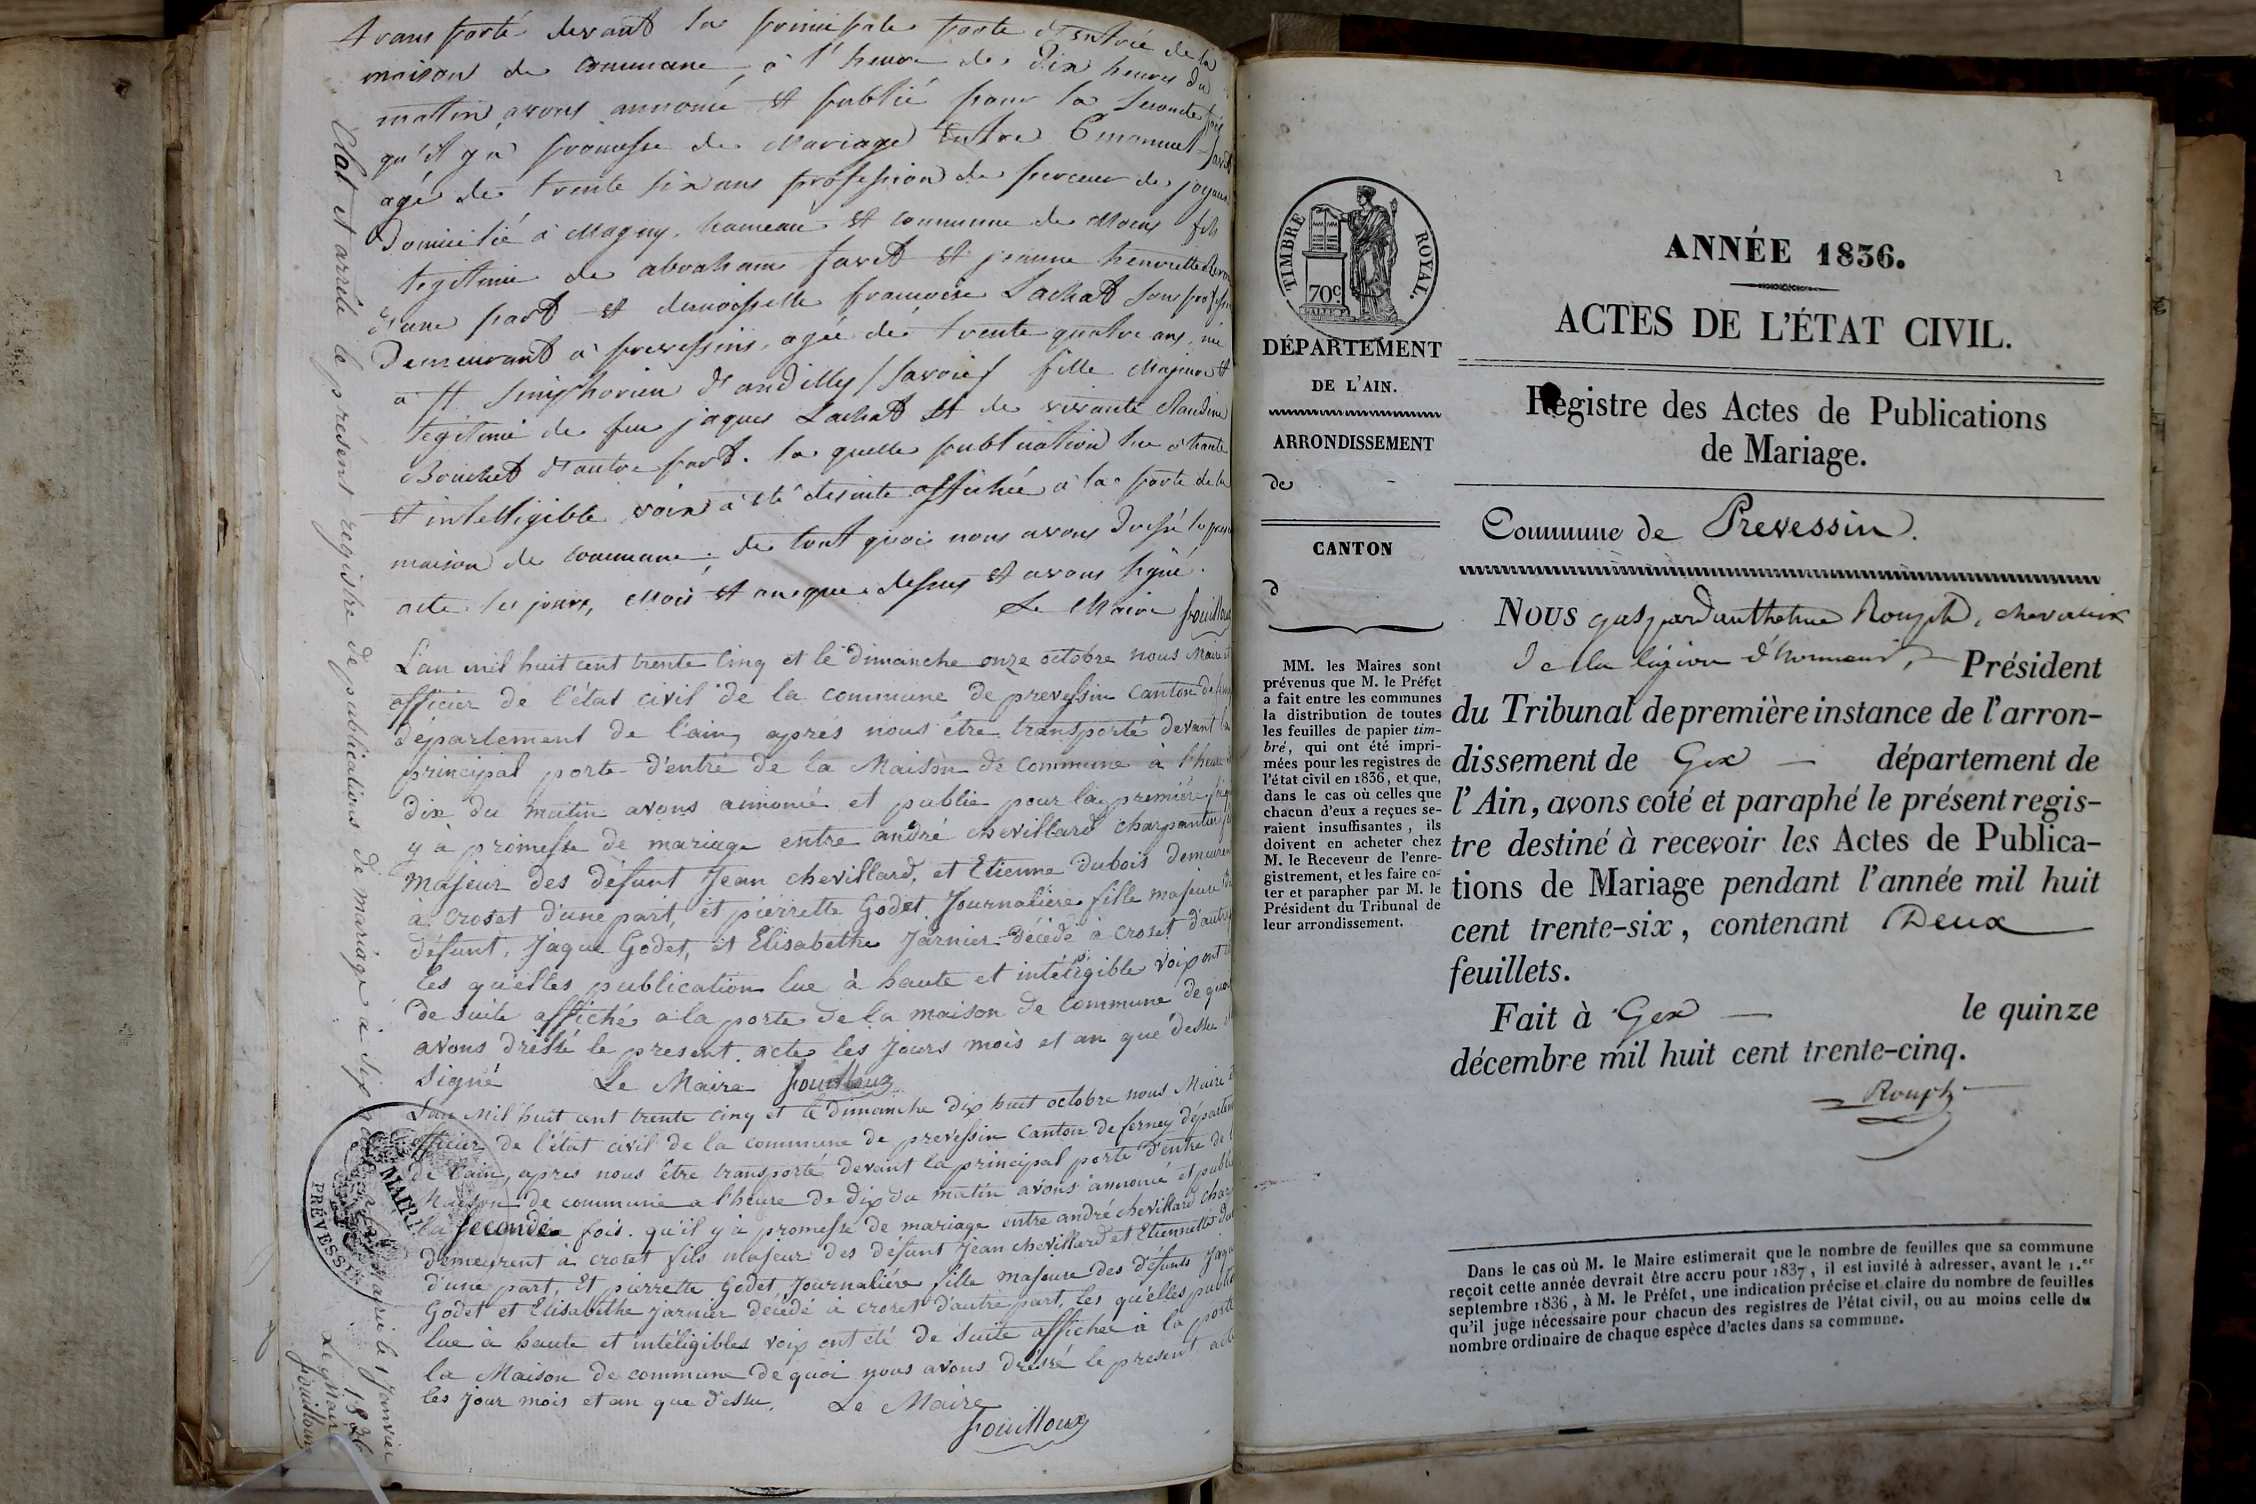 transporté devant la principale porte d'entrée de la
maison de commune, à l'heure de dix heures du
matin avons annoncé et publié pour la seconde fois
qu'il y a promesse de Mariage Entre Emanuel favet
agé de trente six ans profession de perceur de joyaux
Domicilié à Magny, hameau et commune de Moens fils
legitime de abraham favet et jeanne henriette
d'une part et demoisselle francoise Lachat sans profession
Demeurant à prevessins, agée de trente quatre ans, née
à St Simphorien d'andilly (Savoie) fille Majeure et
legitime de feu jaques Lachat et de vivante Claudine
Bouchet d'autre part. la quelle publication lue à haute
et intelligible voix à été desuite affichée à la porte de la
maison de commune; de tout quoi nous avons dressé le present
acte les jours, Mois et an que dessus et avons signé.
Le Maire fouilloux
L'an mil huit cent trente cinq et le dimanche onze octobre nous Maire et
officier de l'état civil de la commune de prevessin Canton de
département de l'ain, aprés nous être transporté devant la
principal porte d'entré de la Maison de Commune à l'heure
dix du matin avons annoncé et publié pour la première
y à promesse de mariage entre andré chevillard charpantier
majeur des défunt Jean chevillard, et Etienne Dubois Demeurent
à croset d'une part, et pierrette Godet Journalière fille majeure
défunt, Jaque Godet, et Elisabethe Jarnier décédé à croset d'autre
les quelles publication lue à haute et intéligible voix ont
de suite affiché à la porte de la maison de Commune de quoi
avons dréssé le present acte les Jours mois et an que dessu
signé Le Maire fouilloux
L'an Mil huit cent trente cinq et le dimanche dix huit octobre nous Maire
officier de l'état civil de la commune de prevessin Canton de ferney départem
de l'ain, apres nous être transporté devant la principal porte d'entré de
Maison de commune a l'heure de dix du matin avons annoncé et publié
la seconde fois qu'il y à promesse de mariage entre andré chevillard char
demeurent à croset fils majeur des défunt Jean chevillard et Etiennette
d'une part, Et pierrette Godet, Journalière fille majeure des défunts Jaque
Godet et Elisabethe Jarnier décédé à croset d'autre part, les quelles public
lue à haute et intéligibles voix ont été de suite affichée à la porte
la Maison de commune de quoi nous avons dréssé le present acte
les jour mois et an que dessu. Le Maire
fouilloux
Clot et arrété le présent registre de publications de mariage à
Mairie le 1 Janvier
1836
Le Maire
fouilloux
MAIRIE
PRÉVESSIN
TIMBRE ROYAL.
70c
DÉPARTEMENT
DE L'AIN.
ARRONDISSEMENT
de
CANTON
d
MM. les Maires sont
prévenus que M. le Préfet
a fait entre les communes
la distribution de toutes
les feuilles de papier tim-
bré, qui ont été impri-
mées pour les registres de
l'état civil en 1836, et que,
dans le cas où celles que
chacun d'eux a reçues se-
raient insuffisantes, ils
doivent en acheter chez
M. le Receveur de l'enre-
gistrement, et les faire co-
ter et parapher par M. le
Président du Tribunal de
leur arrondissement.
ANNÉE 1836.
ACTES DE L'ÉTAT CIVIL.
Registre des Actes de Publications
de Mariage.
Commune de Prevessin.
NOUS gaspard anthelme Rouph, chevalier
de la légion d'honneur, Président
du Tribunal de première instance de l'arron-
dissement de Gex département de
l'Ain, avons coté et paraphé le présent regis-
tre destiné à recevoir les Actes de Publica-
tions de Mariage pendant l'année mil huit
cent trente-six, contenant Deux
feuillets.
Fait à Gex le quinze
décembre mil huit cent trente-cinq.
Rouph
Dans le cas où M. le Maire estimerait que le nombre de feuilles que sa commune
reçoit cette année devrait être accru pour 1837, il est invité à adresser, avant le 1.er
septembre 1836, à M. le Préfet, une indication précise et claire du nombre de feuilles
qu'il juge nécessaire pour chacun des registres de l'état civil, ou au moins celle du
nombre ordinaire de chaque espèce d'actes dans sa commune.